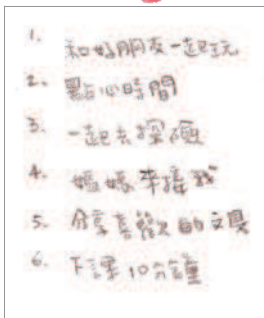 1. 和好朋友一起玩
2. 點心時間
3. 一起去探險
4. 媽媽來接我
5. 分享喜歡的文具
6. 下課10分鐘